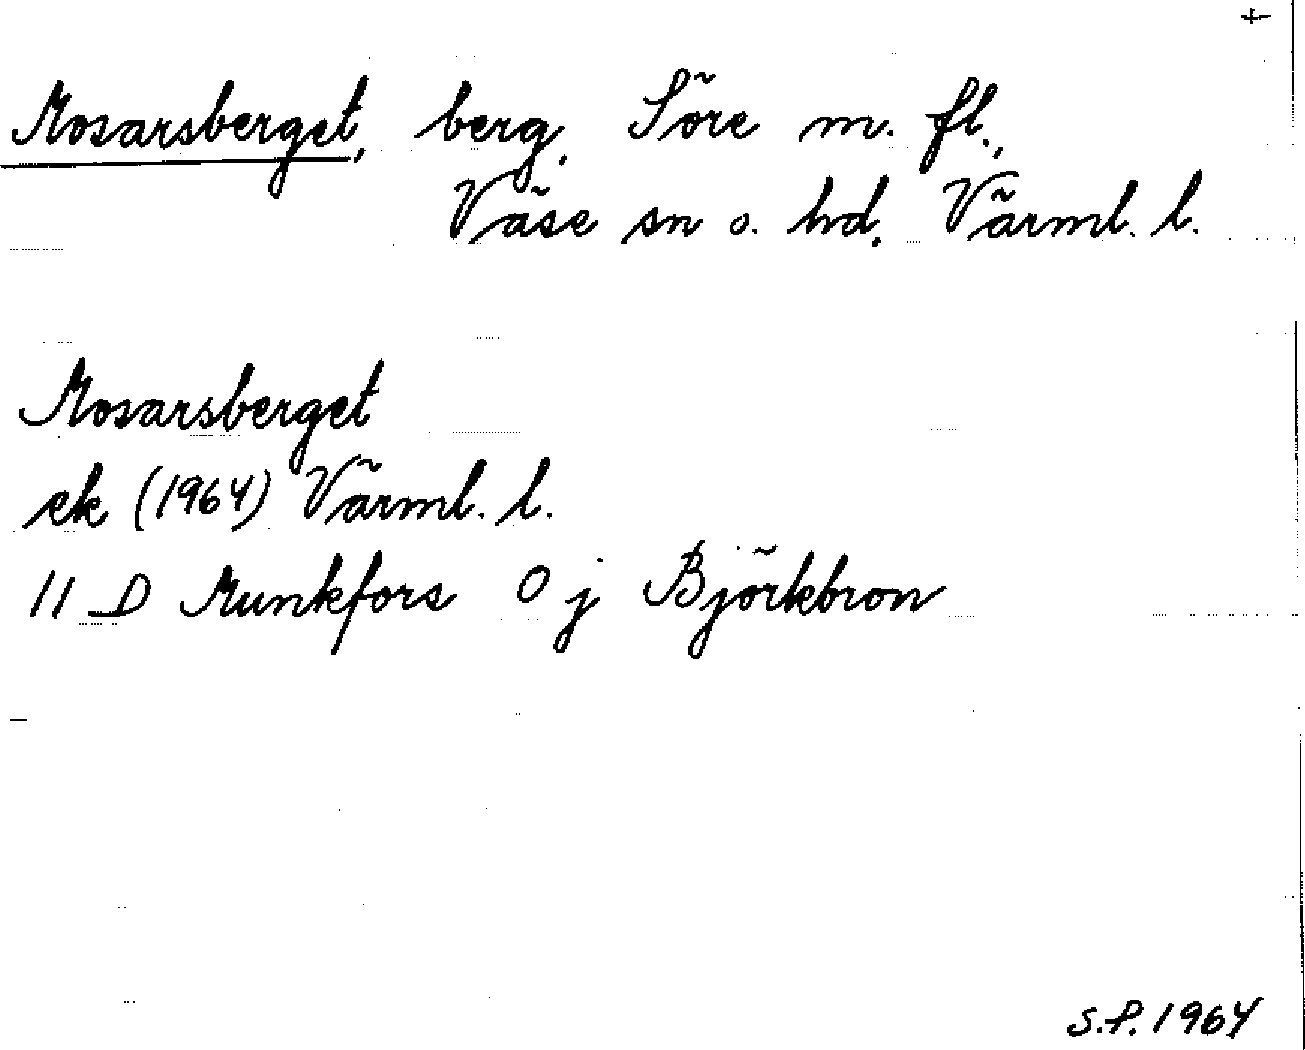 +
Mosarsberget, berg, Söre m. fl.,
Väse sn o. hd, Värml. l.
Mosarsberget
ek (1964) Värml. l.
11 D Munkfors 0 j Björkbron
S.P. 1964